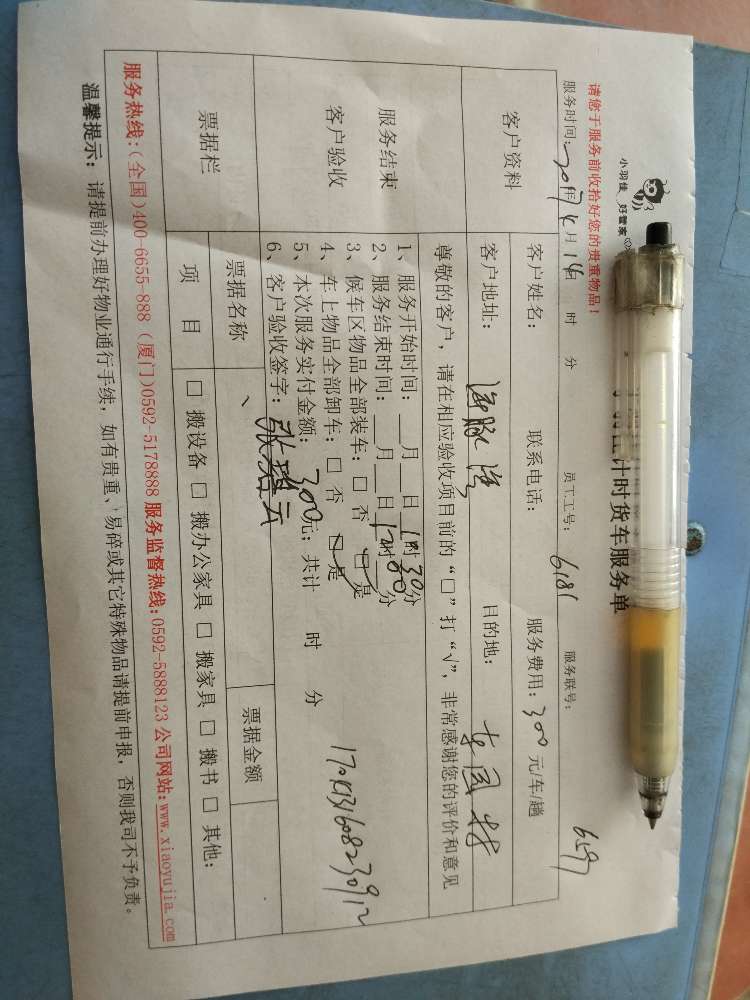 小羽佳 好管家
计时货车服务单
请您于服务前收拾好您的贵重物品！
服务时间：2017年4月14日 时 分 员工工号：6181 服务联号：6597
客户资料
客户姓名： 联系电话： 服务费用：300元/车/趟
客户地址：海脉湾 目的地：东园村
尊敬的客户，请在相应验收项目前的“□”打“√”，非常感谢您的评价和意见
服务结束
客户验收
1、服务开始时间： 月 日 1时30分
2、服务结束时间： 月 日 12时00分
3、候车区物品全部装车：□ 否 □ 是
4、车上物品全部卸车：□ 否 □ 是
5、本次服务实付金额：300元；共计 时 分
6、客户验收签字：
票据栏
票据名称 票据金额
项 目 □ 搬设备 □ 搬办公家具 □ 搬家具 □ 搬书 □ 其他：
服务热线：(全国)400-6655-888 (厦门)0592-5178888 服务监督热线：0592-5888123 公司网站：www.xiaoyujia.com
温馨提示： 请提前办理好物业通行手续，如有贵重、易碎或其它特殊物品请提前申报，否则我司不予负责。